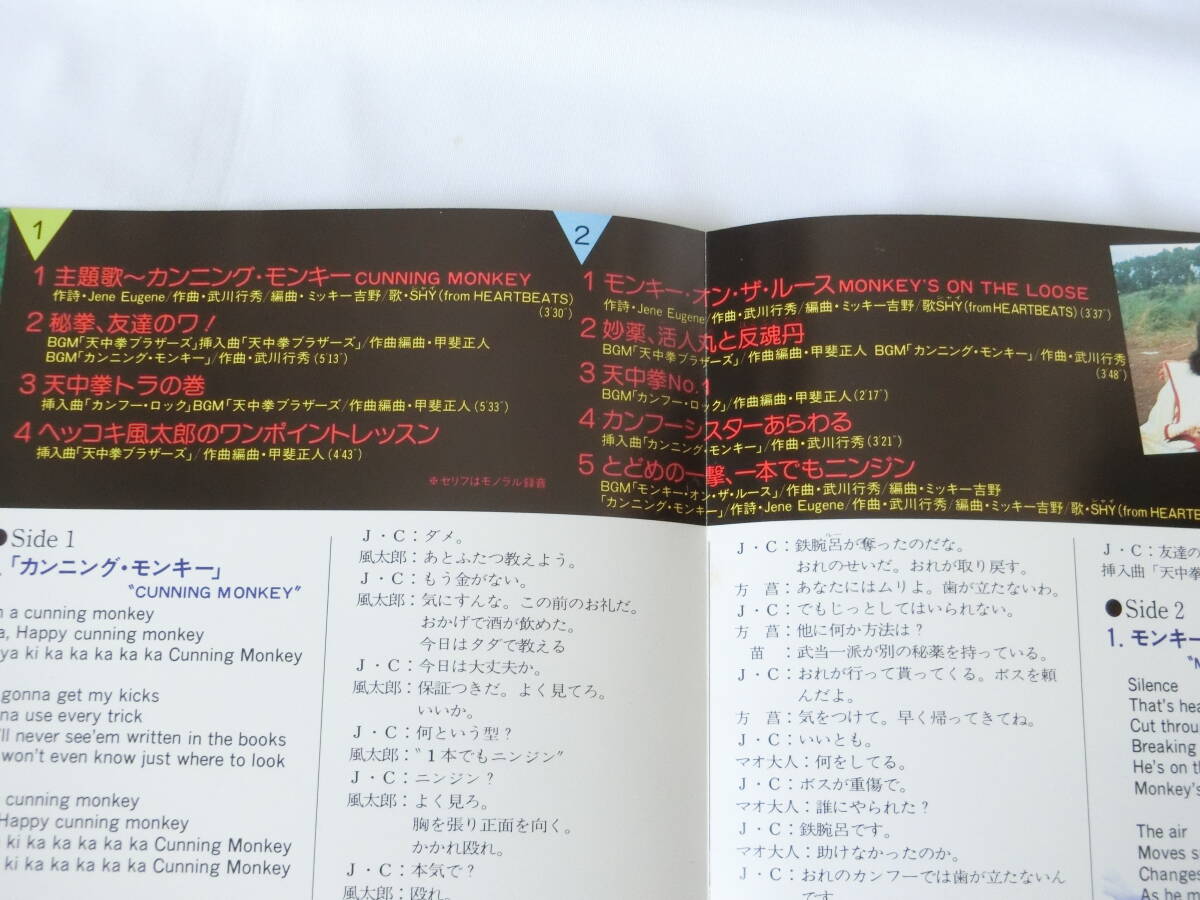 1
1 主題歌〜カンニング・モンキー CUNNING MONKEY
作詩・Jene Eugene/作曲・武川行秀/編曲・ミッキー吉野/歌・SHY(from HEARTBEATS)
(3'30")
2 秘拳、友達のワ!
BGM「天中拳ブラザーズ」挿入曲「天中拳ブラザーズ」/作曲編曲・甲斐正人
BGM「カンニング・モンキー」/作曲・武川行秀(5'13")
3 天中拳トラの巻
挿入曲「カンフー・ロック」BGM「天中拳ブラザーズ/作曲編曲・甲斐正人(5'33")
4 ヘッコキ風太郎のワンポイントレッスン
挿入曲「天中拳ブラザーズ」/作曲編曲・甲斐正人(4'43")
※セリフはモノラル録音
2
1 モンキー・オン・ザ・ルース MONKEY'S ON THE LOOSE
作詩・Jene Eugene/作曲・武川行秀/編曲・ミッキー吉野/歌SHY(from HEARTBEATS)(3'37")
2 妙薬、活人丸と反魂丹
BGM「天中拳ブラザーズ」/作曲編曲・甲斐正人 BGM「カンニング・モンキー」/作曲・武川行秀
(3'48")
3 天中拳No.1
BGM「カンフー・ロック」/作曲編曲・甲斐正人(2'17")
4 カンフーシスターあらわる
挿入曲「カンニング・モンキー」/作曲・武川行秀(3'21")
5 とどめの一撃、一本でもニンジン
BGM「モンキー・オン・ザ・ルース」/作曲・武川行秀/編曲・ミッキー吉野
「カンニング・モンキー」/作詩・Jene Eugene/作曲・武川行秀/編曲・ミッキー吉野/歌・SHY(from HEARTB
●Side 1
「カンニング・モンキー」
"CUNNING MONKEY"
a cunning monkey
a, Happy cunning monkey
ya ki ka ka ka ka ka Cunning Monkey
gonna get my kicks
na use every trick
'll never see'em written in the books
won't even know just where to look
cunning monkey
Happy cunning monkey
ki ka ka ka ka ka Cunning Monkey
ki ka ka ka ka ka Cunning Monkey
J・C:ダメ。
風太郎:あとふたつ教えよう。
J・C:もう金がない。
風太郎:気にすんな。この前のお礼だ。
おかげで酒が飲めた。
今日はタダで教える
J・C:今日は大丈夫か。
風太郎:保証つきだ。よく見てろ。
いいか。
J・C:何という型?
風太郎:"1本でもニンジン"
J・C:ニンジン?
風太郎:よく見ろ。
胸を張り正面を向く。
かかれ殴れ。
J・C:本気で?
風太郎:殴れ。
J・C:鉄腕呂が奪ったのだな。
おれのせいだ。おれが取り戻す。
方 菖:あなたにはムリよ。歯が立たないわ。
J・C:でもじっとしてはいられない。
方 菖:他に何か方法は?
苗 :武当一派が別の秘薬を持っている。
J・C:おれが行って貰ってくる。ボスを頼
んだよ。
方 菖:気をつけて。早く帰ってきてね。
J・C:いいとも。
マオ大人:何をしてる。
J・C:ボスが重傷で。
マオ大人:誰にやられた?
J・C:鉄腕呂です。
マオ大人:助けなかったのか。
J・C:おれのカンフーでは歯が立たないん
です。
J・C:友達の
挿入曲「天中拳
●Side 2
1. モンキー
Silence
That's hea
Cut throu
Breaking
He's on th
Monkey's
The air
Moves s
Changes
As he m